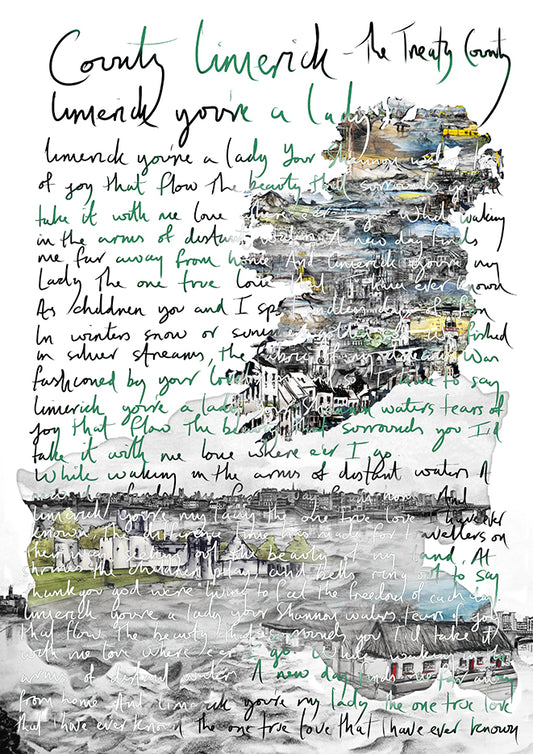 County Limerick - The Treaty County
Limerick you're a lady
Limerick you're a lady Your Shannon waters
of joy that flow The beauty that surrounds you
take it with me love where e'er I go While waking
in the arms of distant waters A new day finds
me far away from home And Limerick you're my
Lady The one true love that I have ever known
As children you and I spent endless days of
In winters snow or summers
in silver streams, the fabric of my dreams Was
fashioned by your love I to say
Limerick you're a lady Shannon waters tears of
joy that flow The beauty that surrounds you I'd
take it with me love where e'er I go
While waking in the arms of distant waters A
new day finds me far from home And
Limerick you're my lady the one true love I have ever
known The difference time has made for travellers on
their way seeking out the beauty of my land. At
the children play and bells ring out to say
thank you god we're living to feel the freedom of each day
Limerick you're a lady your Shannon waters tears of joy
that flow The beauty that surrounds you I'd take it
with me love where e'er I go While waking in the
arms of distant waters A new day finds me far away
from home And Limerick you're my lady the one true love
that I have ever known The one true love that I have ever known